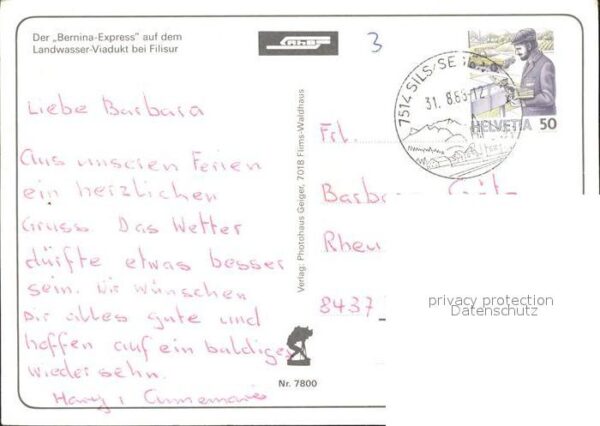 Der „Bernina-Express" auf dem
Landwasser-Viadukt bei Filisur
RhB
3
7514 SILS/SE
31. 8.89-12
HELVETIA 50
Liebe Barbara
Aus unseren Ferien
ein herzlichen
Gruss. Das Wetter
dürfte etwas besser
sein. Wir wünschen
Dir alles gute und
hoffen auf ein baldiges
wiedersehn.
Annemarie
Verlag: Photohaus Geiger, 7018 Flims-Waldhaus
Nr. 7800
Frl.
Barbara
Rheu
8437
privacy protection
Datenschutz